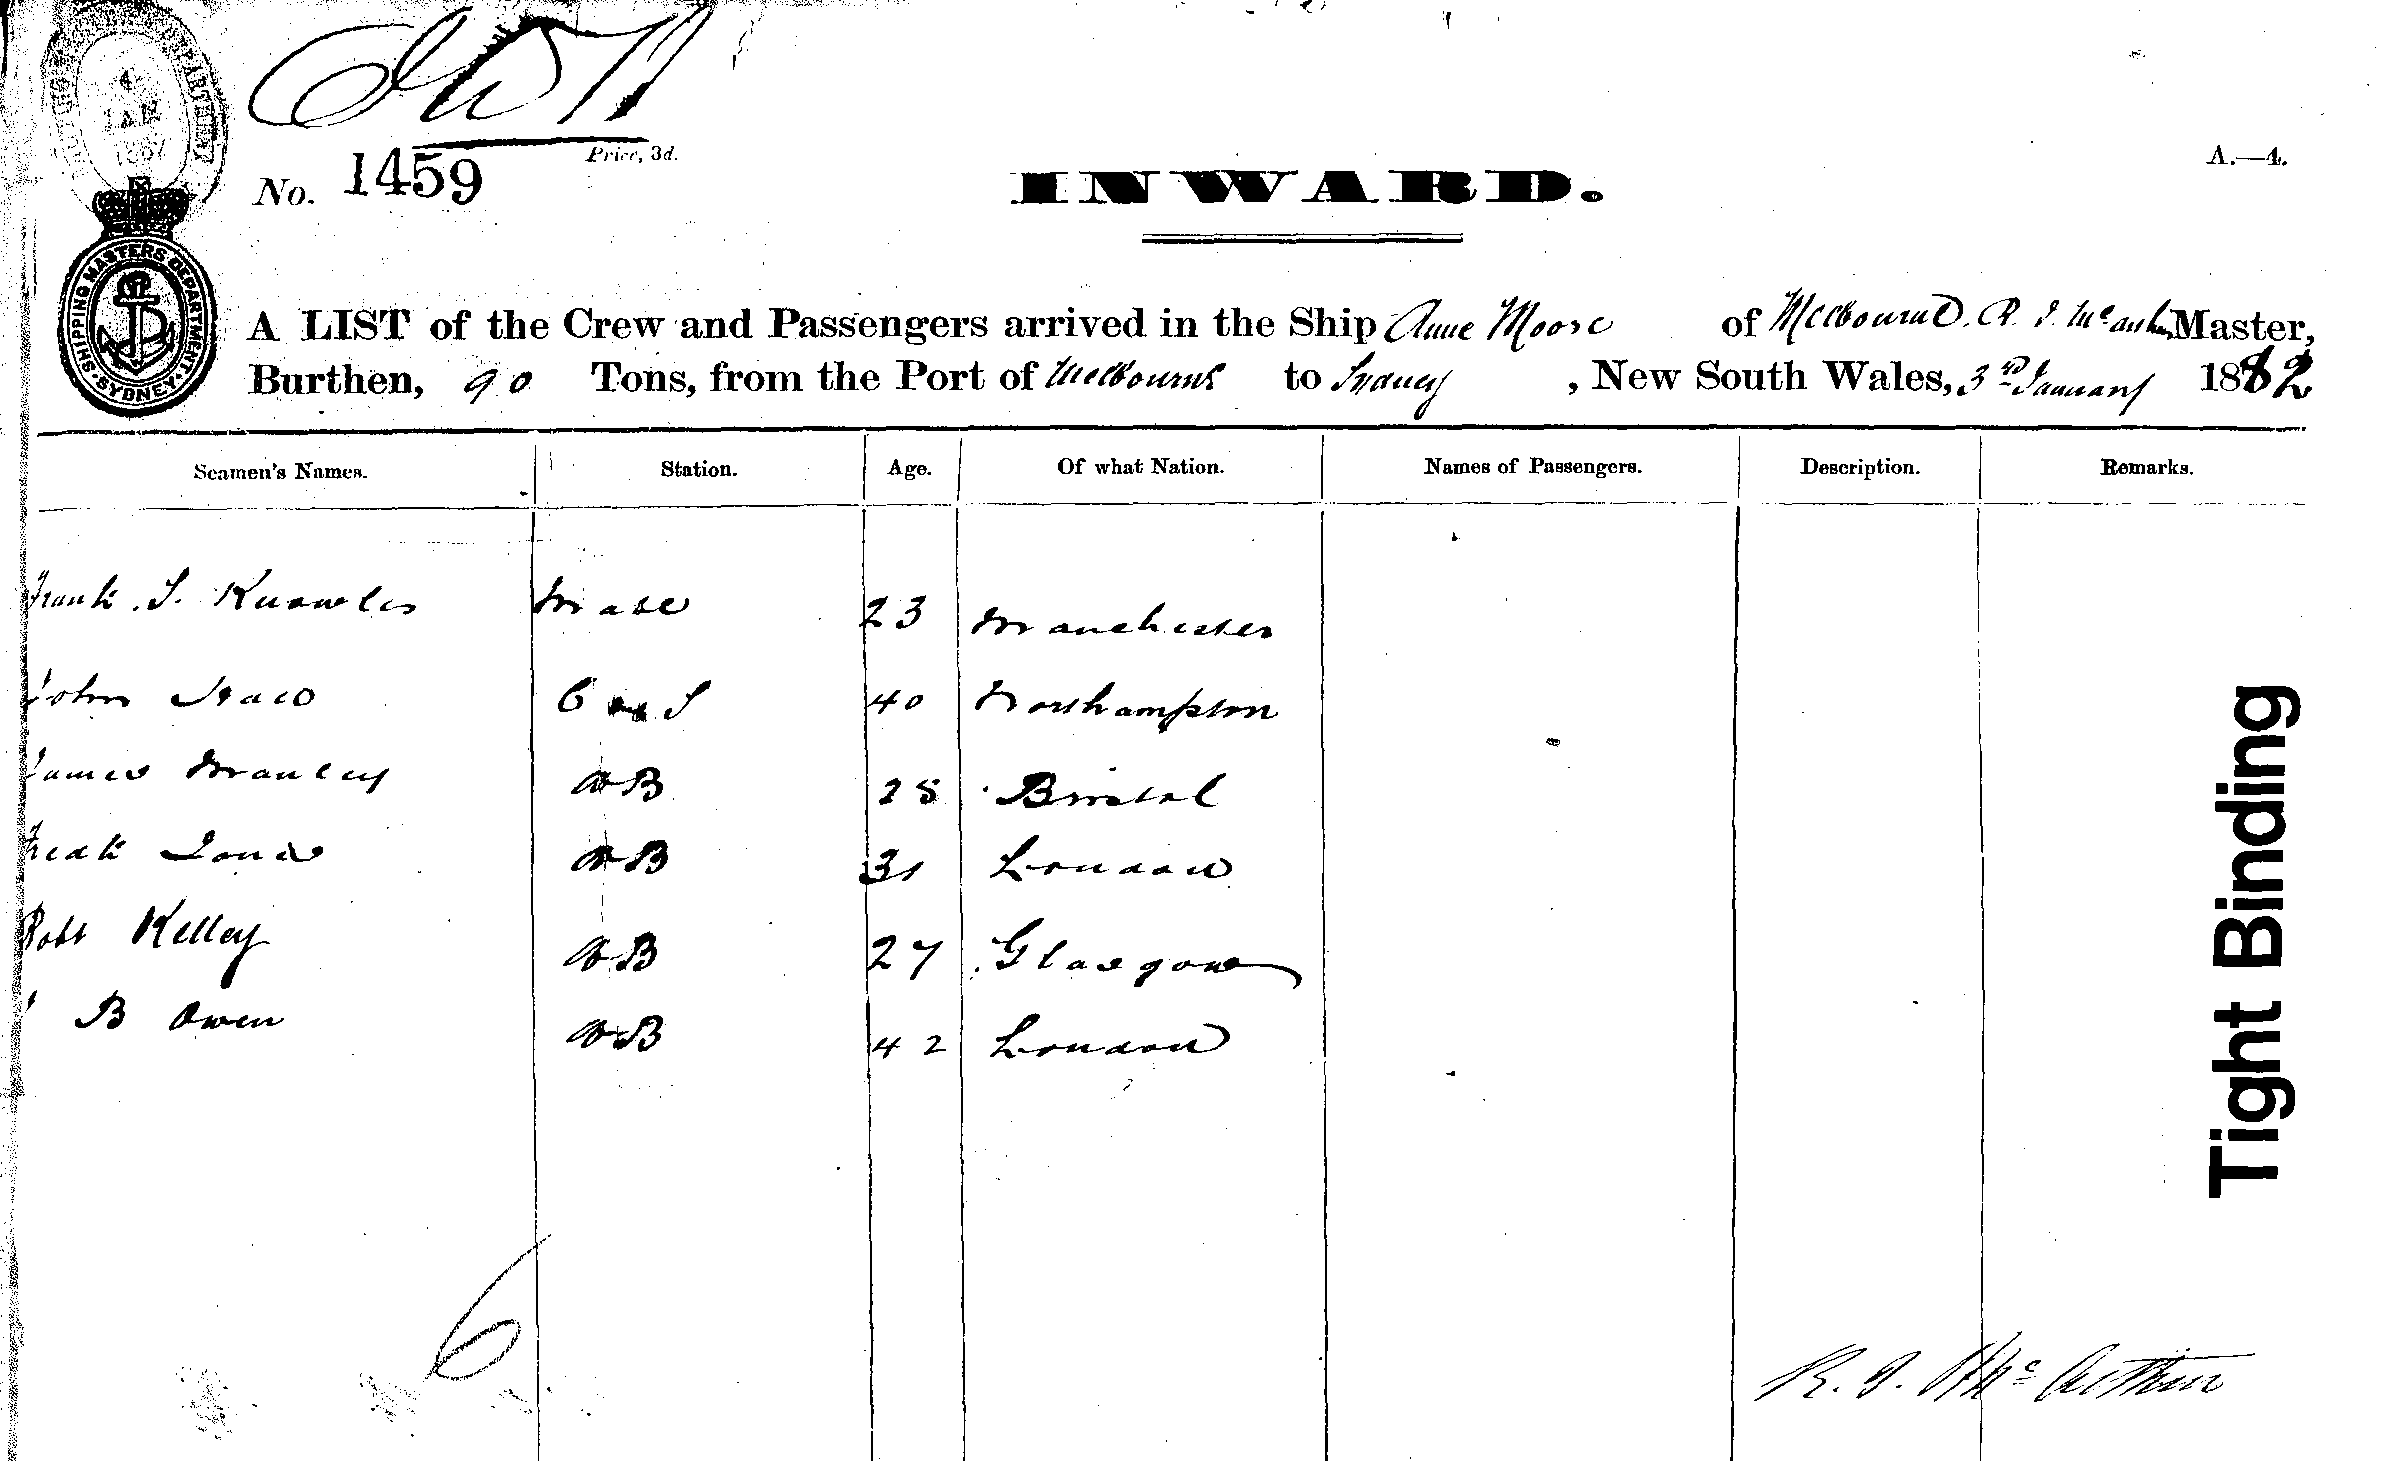 4
JAN
No. 1459
Price, 3d.
INWARD.
A.—4.
SHIPPING MASTERS DEPARTMENT. SYDNEY.
A LIST of the Crew and Passengers arrived in the Ship Anne Moore of Melbourne. R. J. McArthur Master,
Burthen, 90 Tons, from the Port of Melbourne to Sydney, New South Wales, 3rd January 1882
Seamen's Names. Station. Age. Of what Nation. Names of Passengers. Description. Remarks.
Frank J. Knowles Mate 23 Manchester
John 40 Northampton
James Manley AB 28 Bristol
Fredk Jones AB 31 London
Robt Kelley AB 27 Glasgow
B Owen AB 42 London
6
R. J. McArthur
Tight Binding